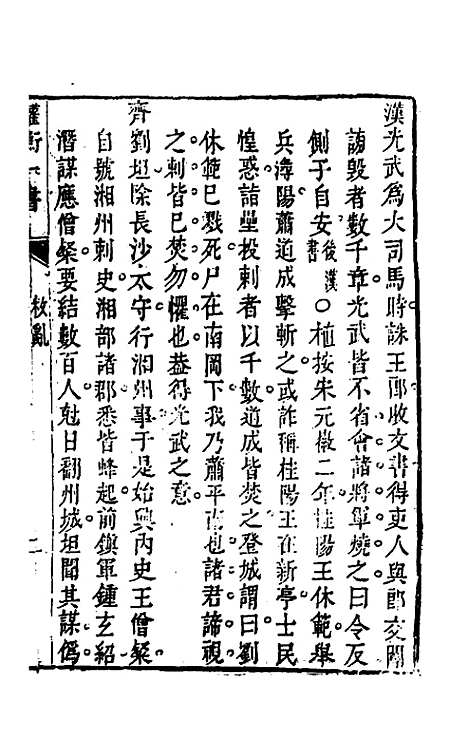 漢光武爲大司馬時誅王郎收文書得吏人與郎交關
謗毀者數千章光武皆不省會諸將軍燒之曰令反
側子自安後漢書○植按宋元徽二年桂陽王休範舉
兵潯陽蕭道成擊斬之或詐稱桂陽王在新亭士民
惶惑詣壘投刺者以千數道成皆焚之登城謂曰劉
休範已戮死尸在南岡下我乃蕭平南也諸君諦視
之刺皆已焚勿懼也蓋得光武之意
齊劉坦除長沙太守行湘州事于是始興內史王僧粲
自號湘州刺史湘部諸郡悉皆蜂起前鎮軍鍾玄紹
潛謀應僧粲要結數百人尅日翻州城坦聞其謀僞
權衡一書
救亂
二